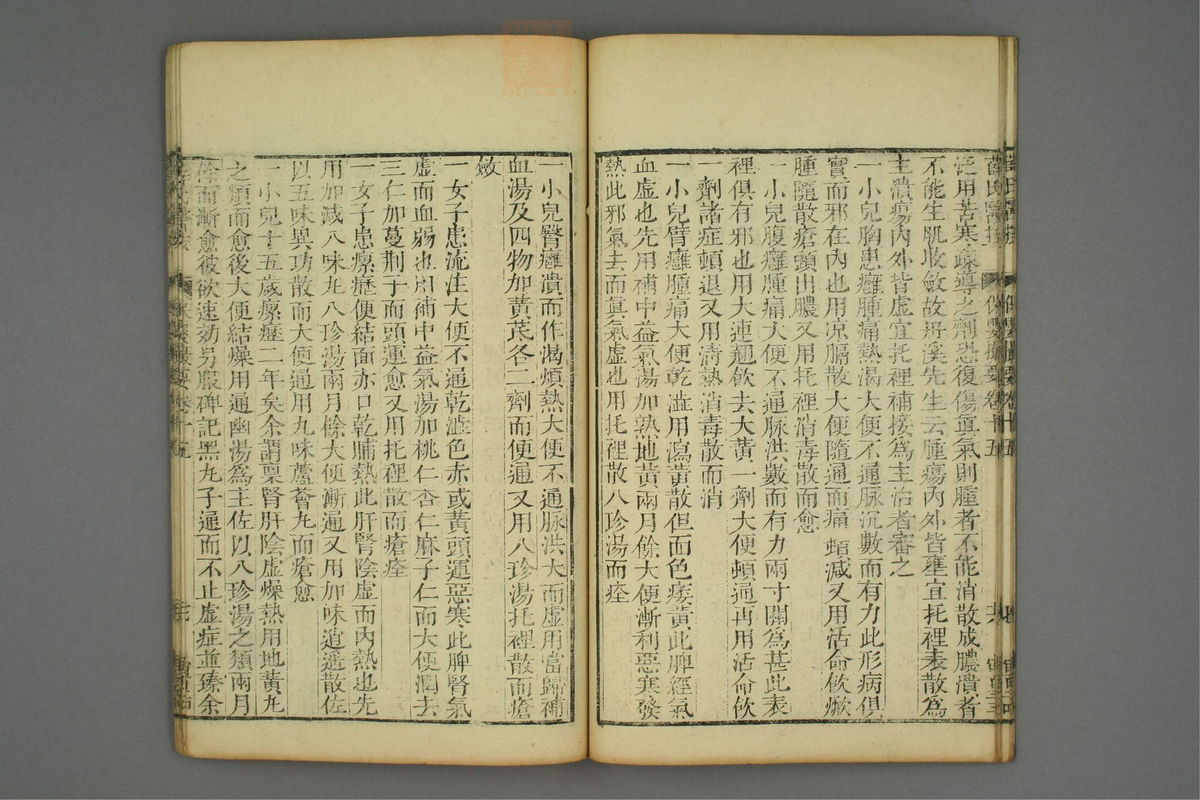 泛用苦寒疎導之劑恐復傷眞氣則腫者不能消散成膿潰者
不能生肌收斂故丹溪先生云腫瘍內外皆壅宜托裡表散爲
主潰瘍內外皆虛宜托裡補接爲主治者審之
一小兒胸患癰腫痛熱渴大便不通脉沉數而有力此形病俱
實而邪在內也用凉膈散大便隨通而痛稍減又用活命飲焮
腫隨散瘡頭出膿又用托裡消毒散而愈
一小兒腹癰腫痛大便不通脉洪數而有力兩寸關爲甚此表
裡俱有邪也用大連翹飲去大黃一劑大便頓通再用活命飲
一劑諸症頓退又用清熱消毒散而消
一小兒臂癰腫痛大便乾澁用瀉黃散但面色痿黃此脾經氣
血虛也先用補中益氣湯加熟地黃兩月餘大便漸利惡寒發
熱此邪氣去而眞氣虛也用托裡散八珍湯而痊
一小兒臀癰潰而作渴煩熱大便不通脉洪大而虛用當歸補
血湯及四物加黃芪各二劑而便通又用八珍湯托裡散而瘡
斂
一女子患流注大便不通乾澁色赤或黃頭運惡寒此脾腎氣
虛而血弱也用補中益氣湯加桃仁杏仁麻子仁而大便潤去
三仁加蔓荆子而頭運愈又用托裡散而瘡痊
一女子患瘰癧便結面赤口乾晡熱此肝腎陰虛而內熱也先
用加減八味丸八珍湯兩月餘大便漸通又用加味逍遥散佐
以五味異功散而大便通用九味蘆薈丸而瘡愈
一小兒十五歲瘰癧二年矣余謂稟腎肝陰虛燥熱用地黃丸
之類而愈後大便結燥用通幽湯爲主佐以八珍湯之類兩月
餘而漸愈彼欲速効另服碑記黑丸子通而不止虛症並臻余
薛氏醫按
保嬰撮要卷十五